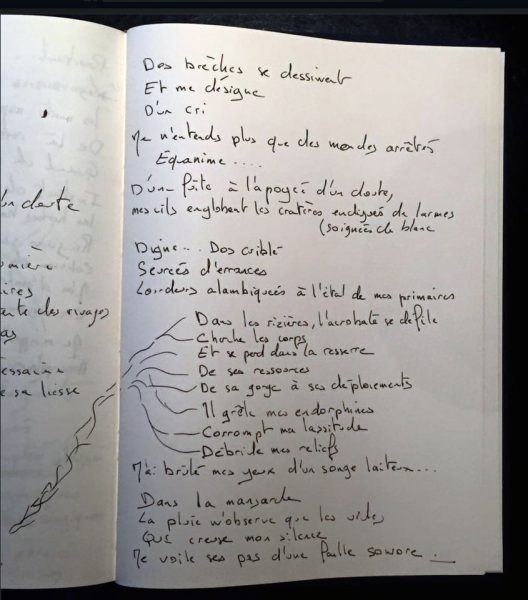 un doute
mière
aires
ente des rivages
as
essaim
e sa liesse
Des brèches se dessinent
Et me désigne
D'un cri
Je n'entends plus que des mondes arrêtés
Equanime ....
D'une fuite à l'apogée d'un doute,
mes cils englobent les cratères endigués de larmes
(soignées de blanc
Digne... Dos criblé
Sevrées d'errances
Lourdeurs alambiquées à l'étal de mes primaires
Dans les rizières, l'acrobate se défile
Cherche les corps
Et se perd dans la resserre
De ses ressources
De sa gorge à ses déploiements
Il grêle mes endorphines
Corrompt ma lassitude
Débride mes reliefs
J'ai brûlé mes yeux d'un songe laiteux...
Dans la mansarde
La pluie n'observe que les vides
Que creuse mon silence
Je voile ses pas d'une faille sonore _.